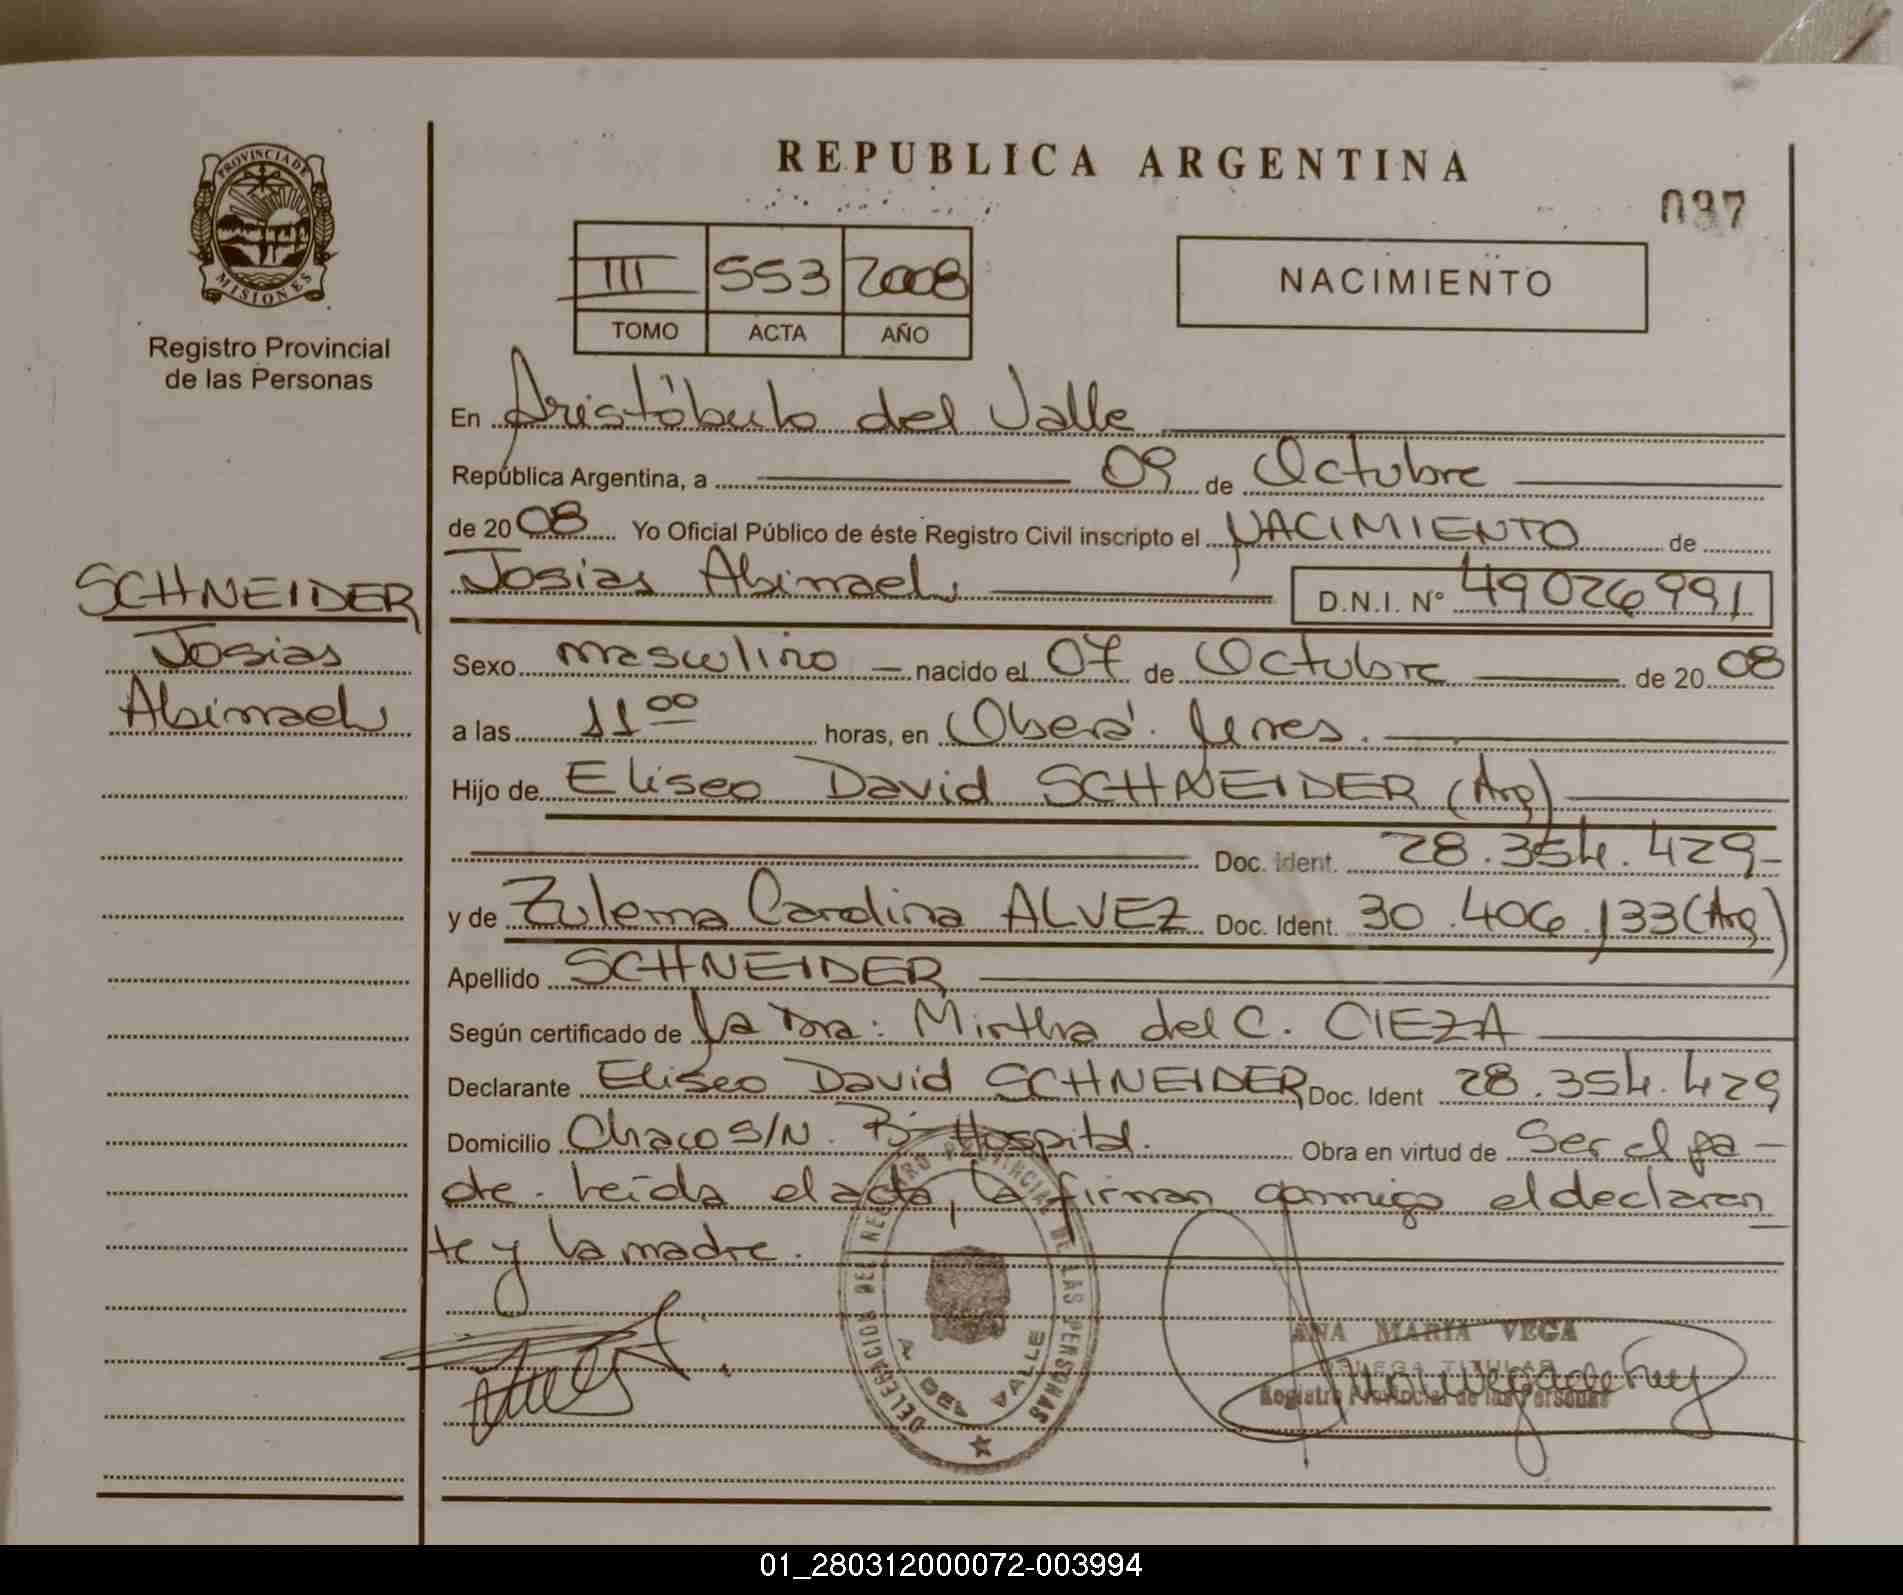 PROVINCIA DE
MISIONES
Registro Provincial
de las Personas
SCHNEIDER
Josias
Abimael
REPUBLICA ARGENTINA
037
III 553 2008
TOMO ACTA AÑO
NACIMIENTO
En Aristóbulo del Valle
República Argentina, a 09 de Octubre
de 2008 Yo Oficial Público de éste Registro Civil inscripto el NACIMIENTO de
Josias Abimael D.N.I. N° 49026991
Sexo masculino nacido el 07 de Octubre de 2008
a las 11 00 horas, en Oberá.
Hijo de Eliseo David SCHNEIDER (Arg)
Doc. ident. 28.354.429
y de Zulema Carolina ALVEZ Doc. Ident. 30.406.133 (Arg)
Apellido SCHNEIDER
Según certificado de la Dra: Mirtha del C. CIEZA
Declarante Eliseo David SCHNEIDER Doc. Ident 28.354.429
Domicilio Chaco S/N. B- Hospital. Obra en virtud de Ser el pa-
dre. Leída el acta, la firman conmigo el declaran
te y la madre.
DELEGACION DEL REGISTRO PROVINCIAL DE LAS PERSONAS
A. DEL VALLE
ANA MARIA VEGA
DELEGA TITULAR
Registro Provincial de las Personas
01_280312000072-003994